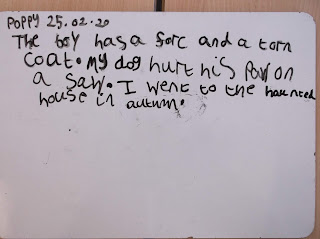 POPPY 25.02.20
The boy has a forc and a torn
coat. my dog hurt his Paw on
a saw. I went to the haunted
house in autumn.